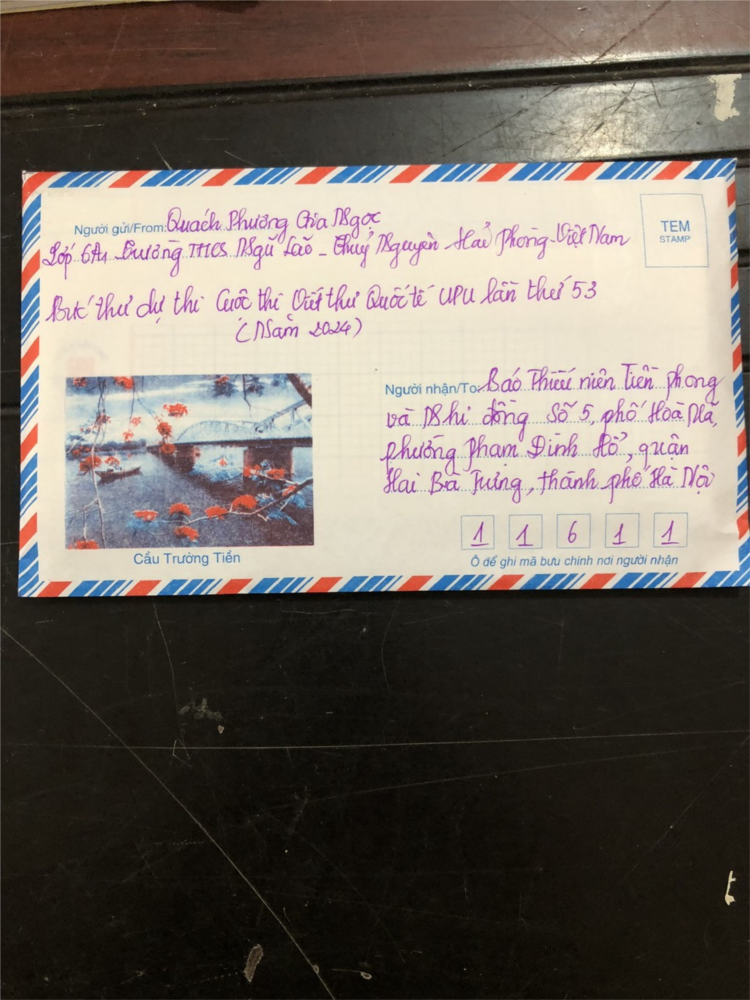 Người gửi/From: Quách Phương Gia Ngọc
Lớp 6A1 Trường THCS Ngũ Lão - Thuỷ Nguyên - Hải Phòng - Việt Nam
Bức thư dự thi Cuộc thi Viết thư Quốc tế UPU lần thứ 53
(Năm 2024)
TEM
STAMP
Người nhận/To: Báo Thiếu niên Tiền phong
và Nhi đồng Số 5, phố Hoà Mã,
phường Phạm Đình Hổ, quận
Hai Bà Trưng, thành phố Hà Nội
1 1 6 1 1
Ô để ghi mã bưu chính nơi người nhận
Cầu Trường Tiền